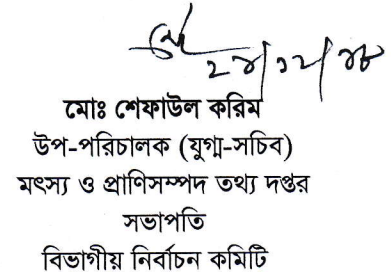 ২৪/১২/১৮
মোঃ শেফাউল করিম
উপ-পরিচালক (যুগ্ম-সচিব)
মৎস্য ও প্রাণিসম্পদ তথ্য দপ্তর
সভাপতি
বিভাগীয় নির্বাচন কমিটি